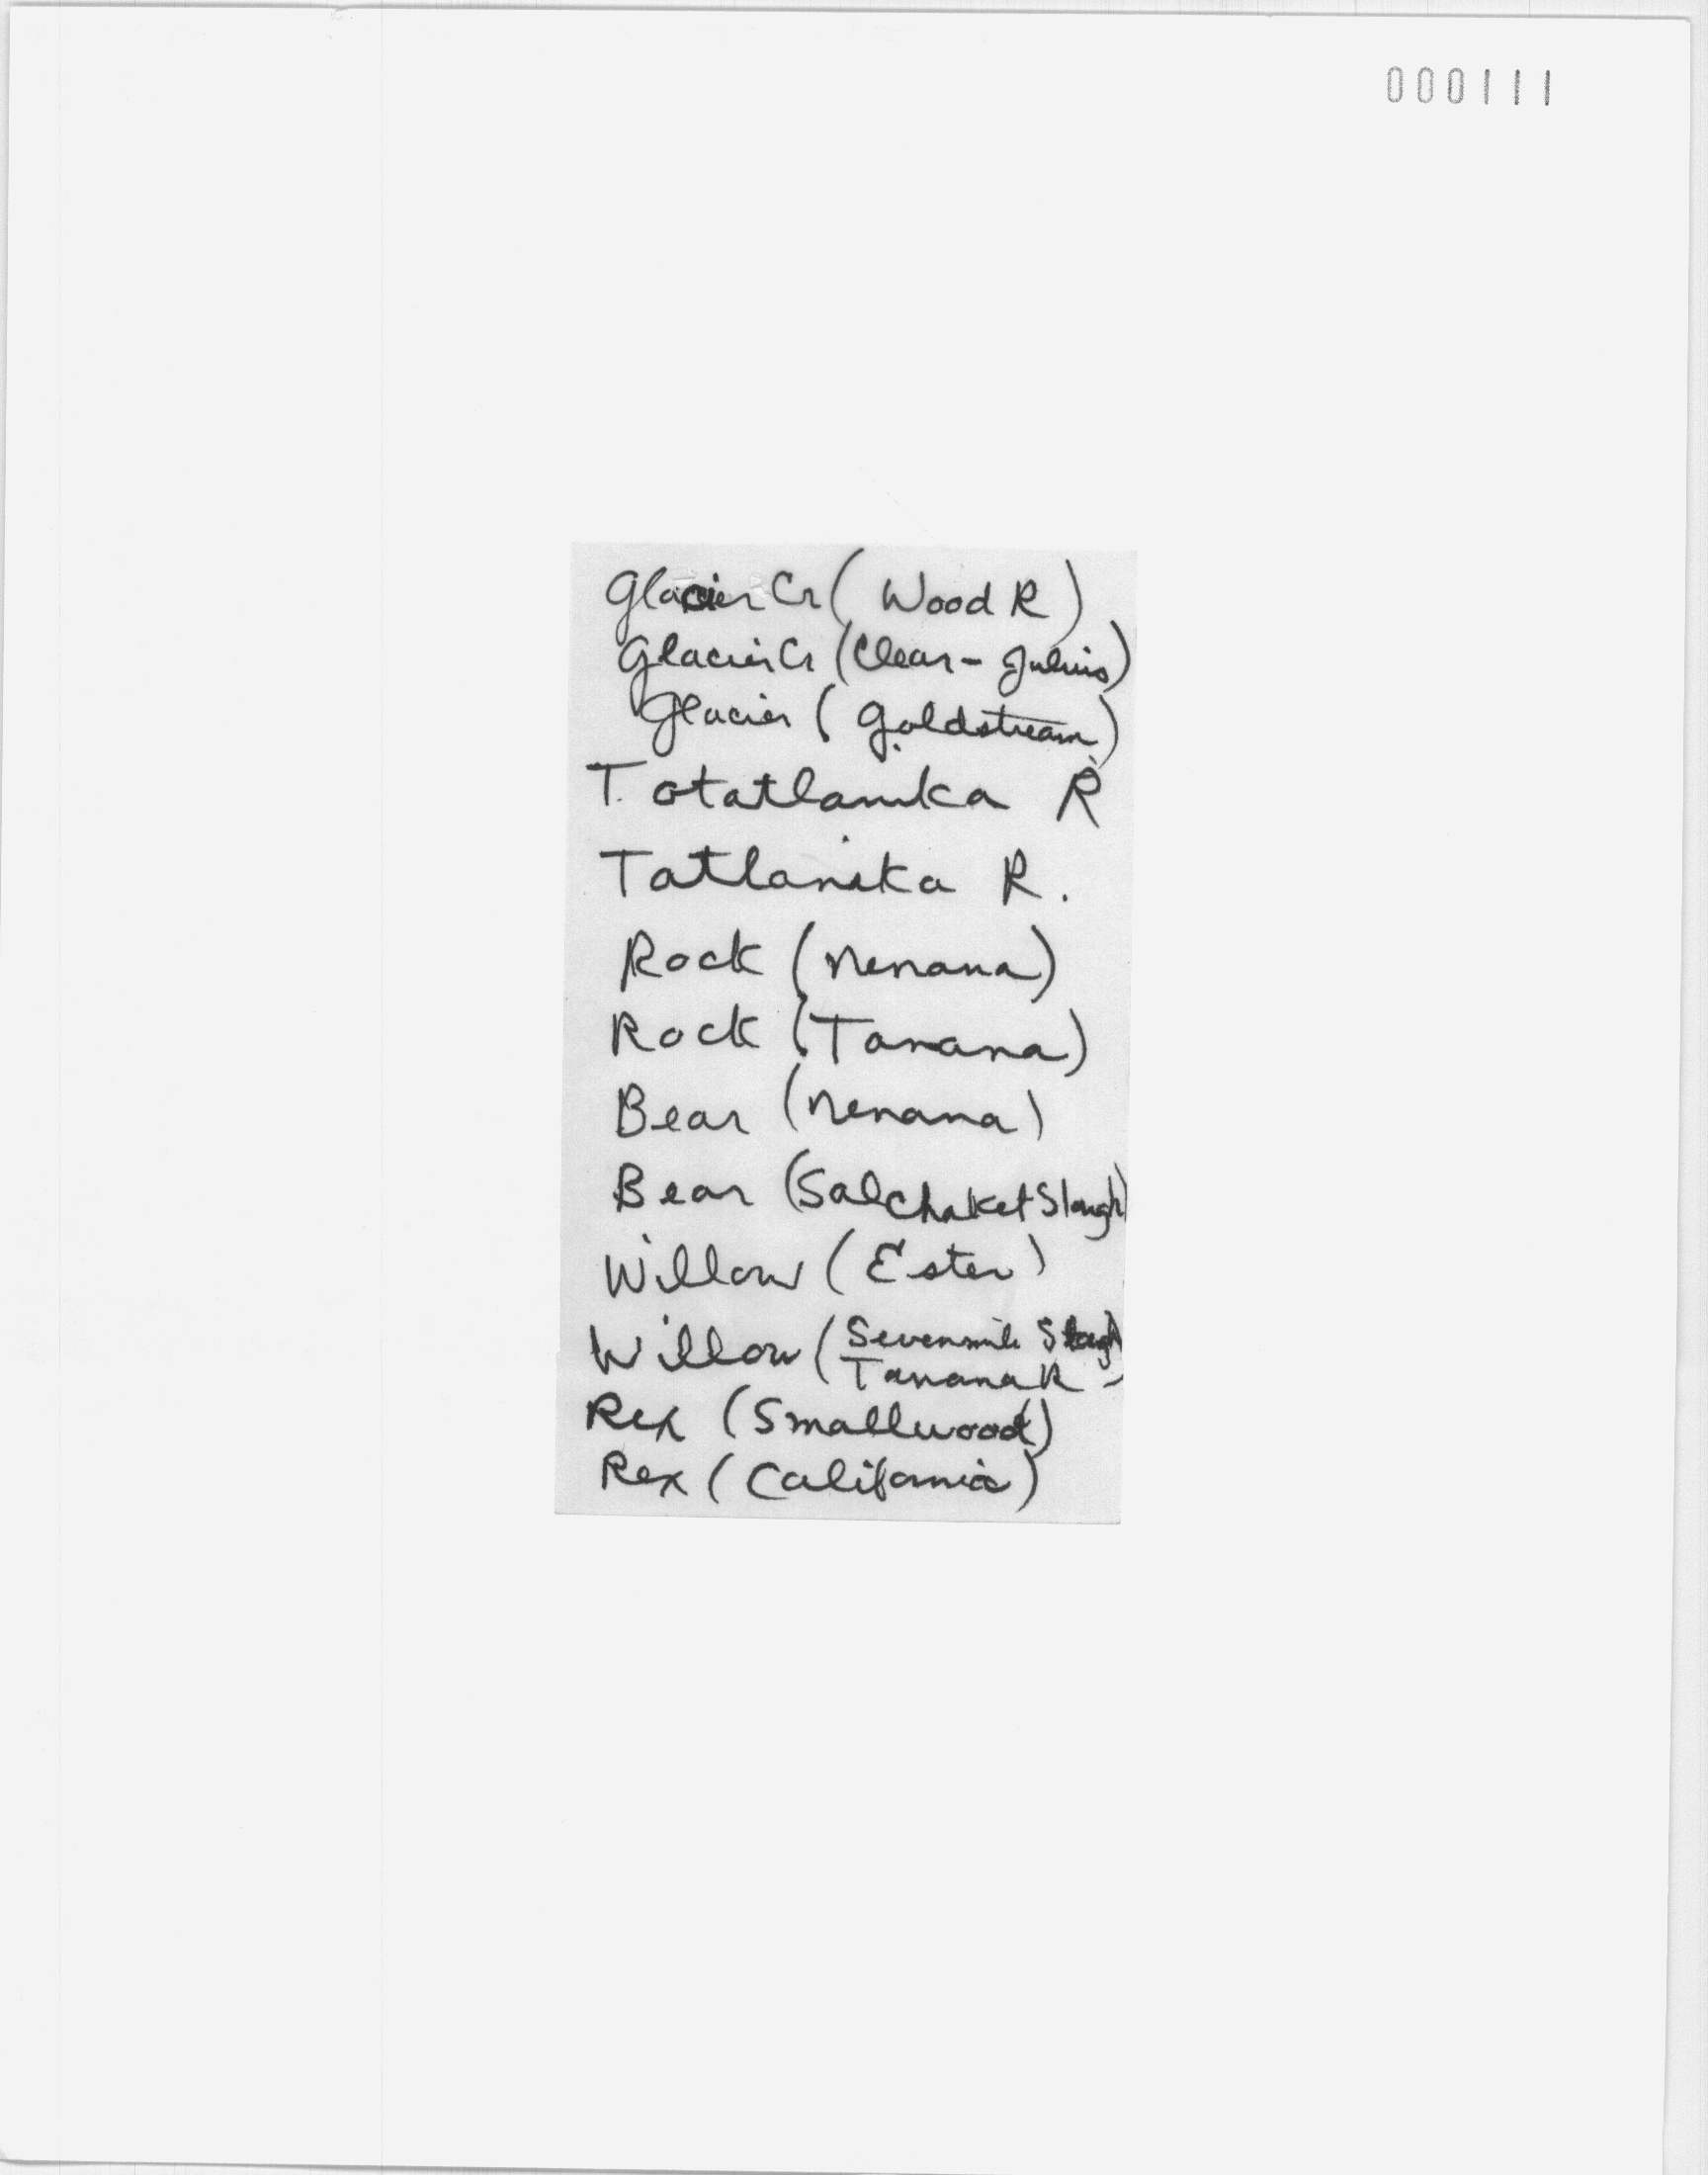 000111
Glacier Cr (Wood R)
Glacier Cr (Clear - Julius)
Glacier (Goldstream)
Totatlanika R
Tatlanika R.
Rock (Nenana)
Rock (Tanana)
Bear (Nenana)
Bear (Salchaket Slough)
Willow (Ester)
Willow (Sevenmile Slough
Tanana R)
Rex (Smallwood)
Rex (California)